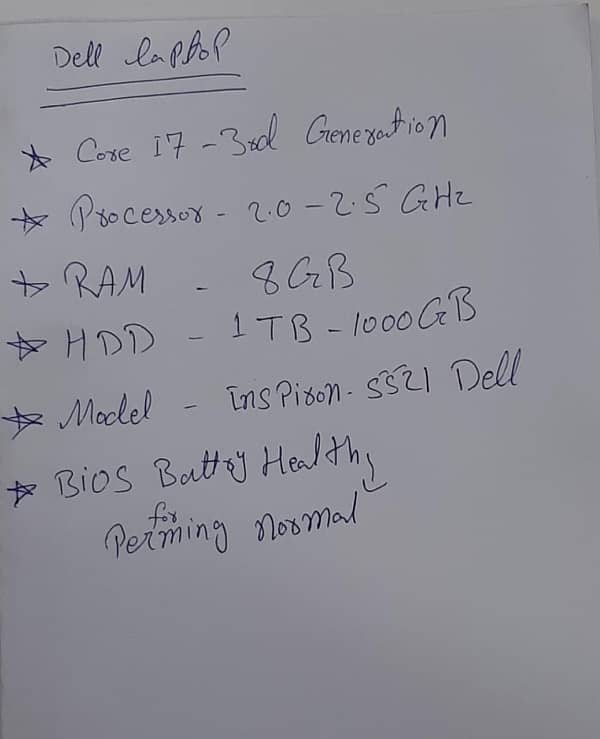 Dell laptop
Core I7 - 3rd Generation
Processor - 2.0 - 2.5 GHz
RAM - 8GB
HDD - 1TB - 1000GB
Model - InsPiron - 5521 Dell
BIOS Battry Healthy
Performing normal